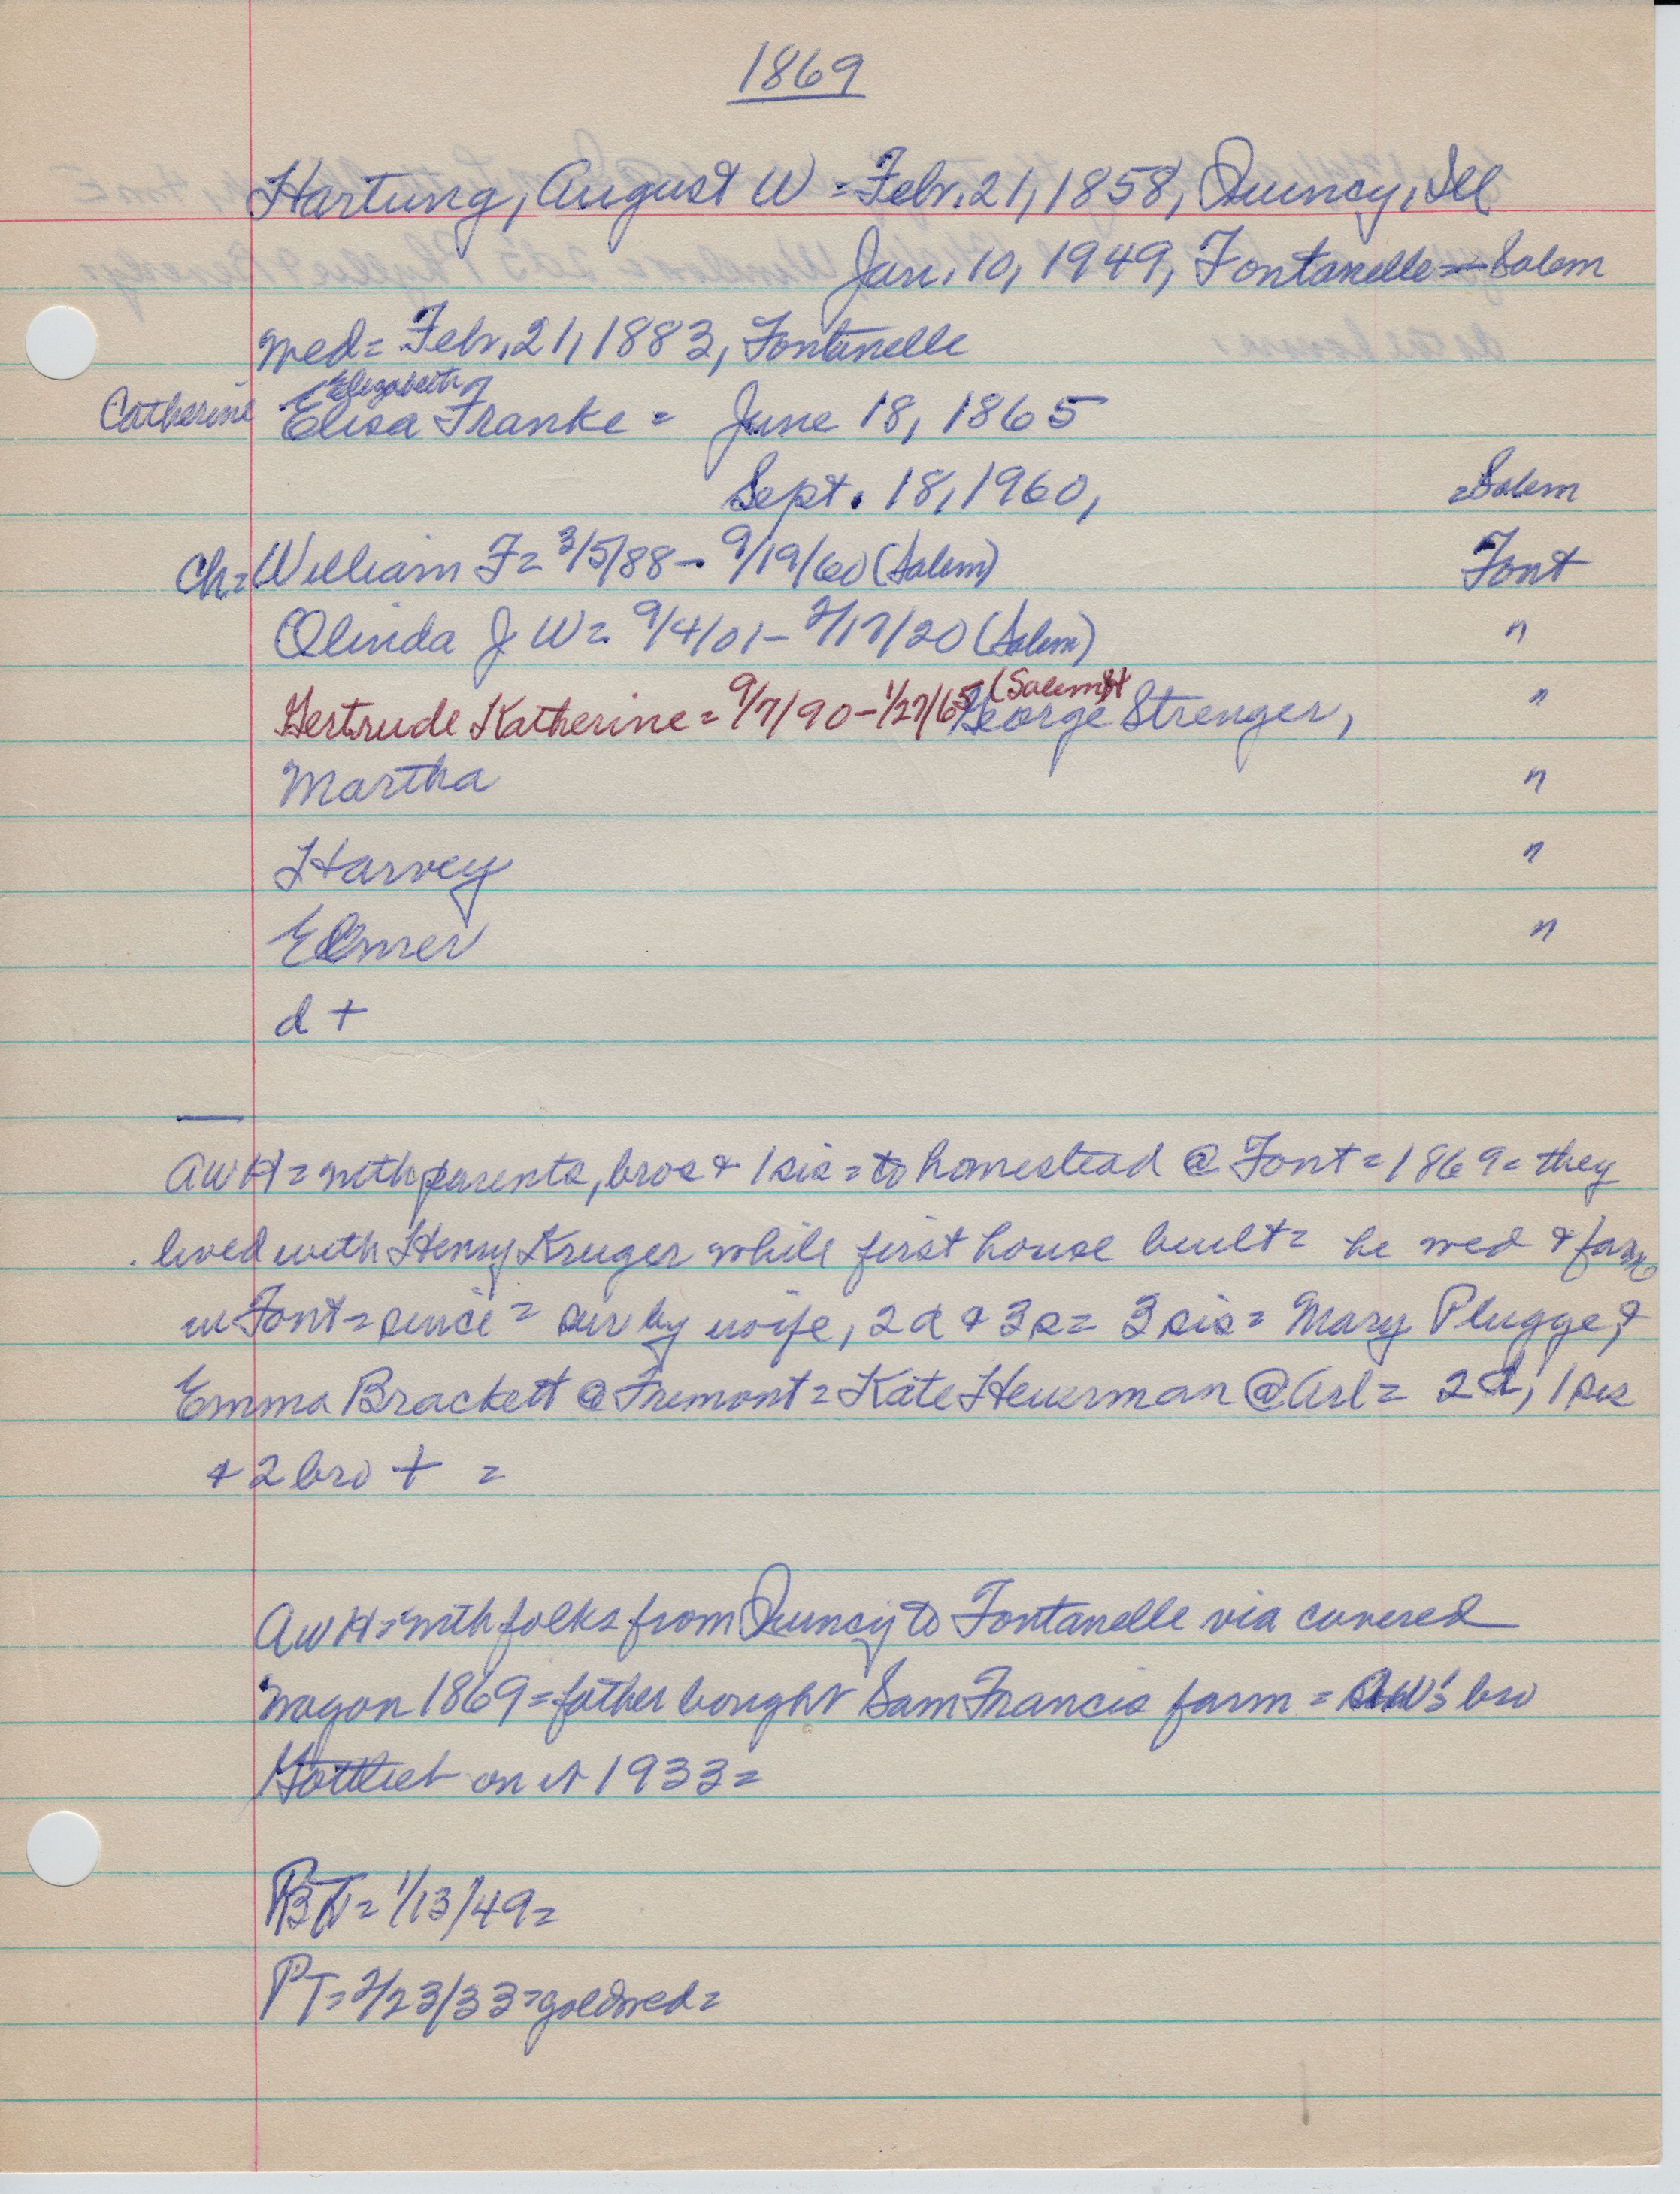 1869
Hartung, August W = Febr. 21, 1858, Quincy, Ill
Jan. 10, 1949, Fontanelle = Salem
wed = Febr. 21, 1883, Fontanelle
Elizabeth
Catherine Elisa Franke = June 18, 1865
Sept. 18, 1960, = Salem
Ch = William F = 3/5/88 - 9/19/60 (Salem) Font
Olinda J W = 9/4/01 - 2/17/20 (Salem) "
Gertrude Katherine = 9/7/90 - 1/27/65 (Salem) George Strenger, "
Martha "
Harvey "
Elmer "
d +
AWH = with parents, bros + 1 sis = to homestead @ Font = 1869 = they
lived with Henry Kruger while first house built = he wed + farm
in Font = since = sur by wife, 2 d + 3 s = 3 sis = Mary Plugge, +
Emma Brackett @ Fremont = Kate Heuerman @ Arl = 2 d, 1 sis
+ 2 bro + =
AWH = with folks from Quincy to Fontanelle via covered
wagon 1869 = father bought Sam Francis farm = AW's bro
Gottlieb on it 1933 =
= 1/13/49 =
PT = 2/23/33 = goldwed =